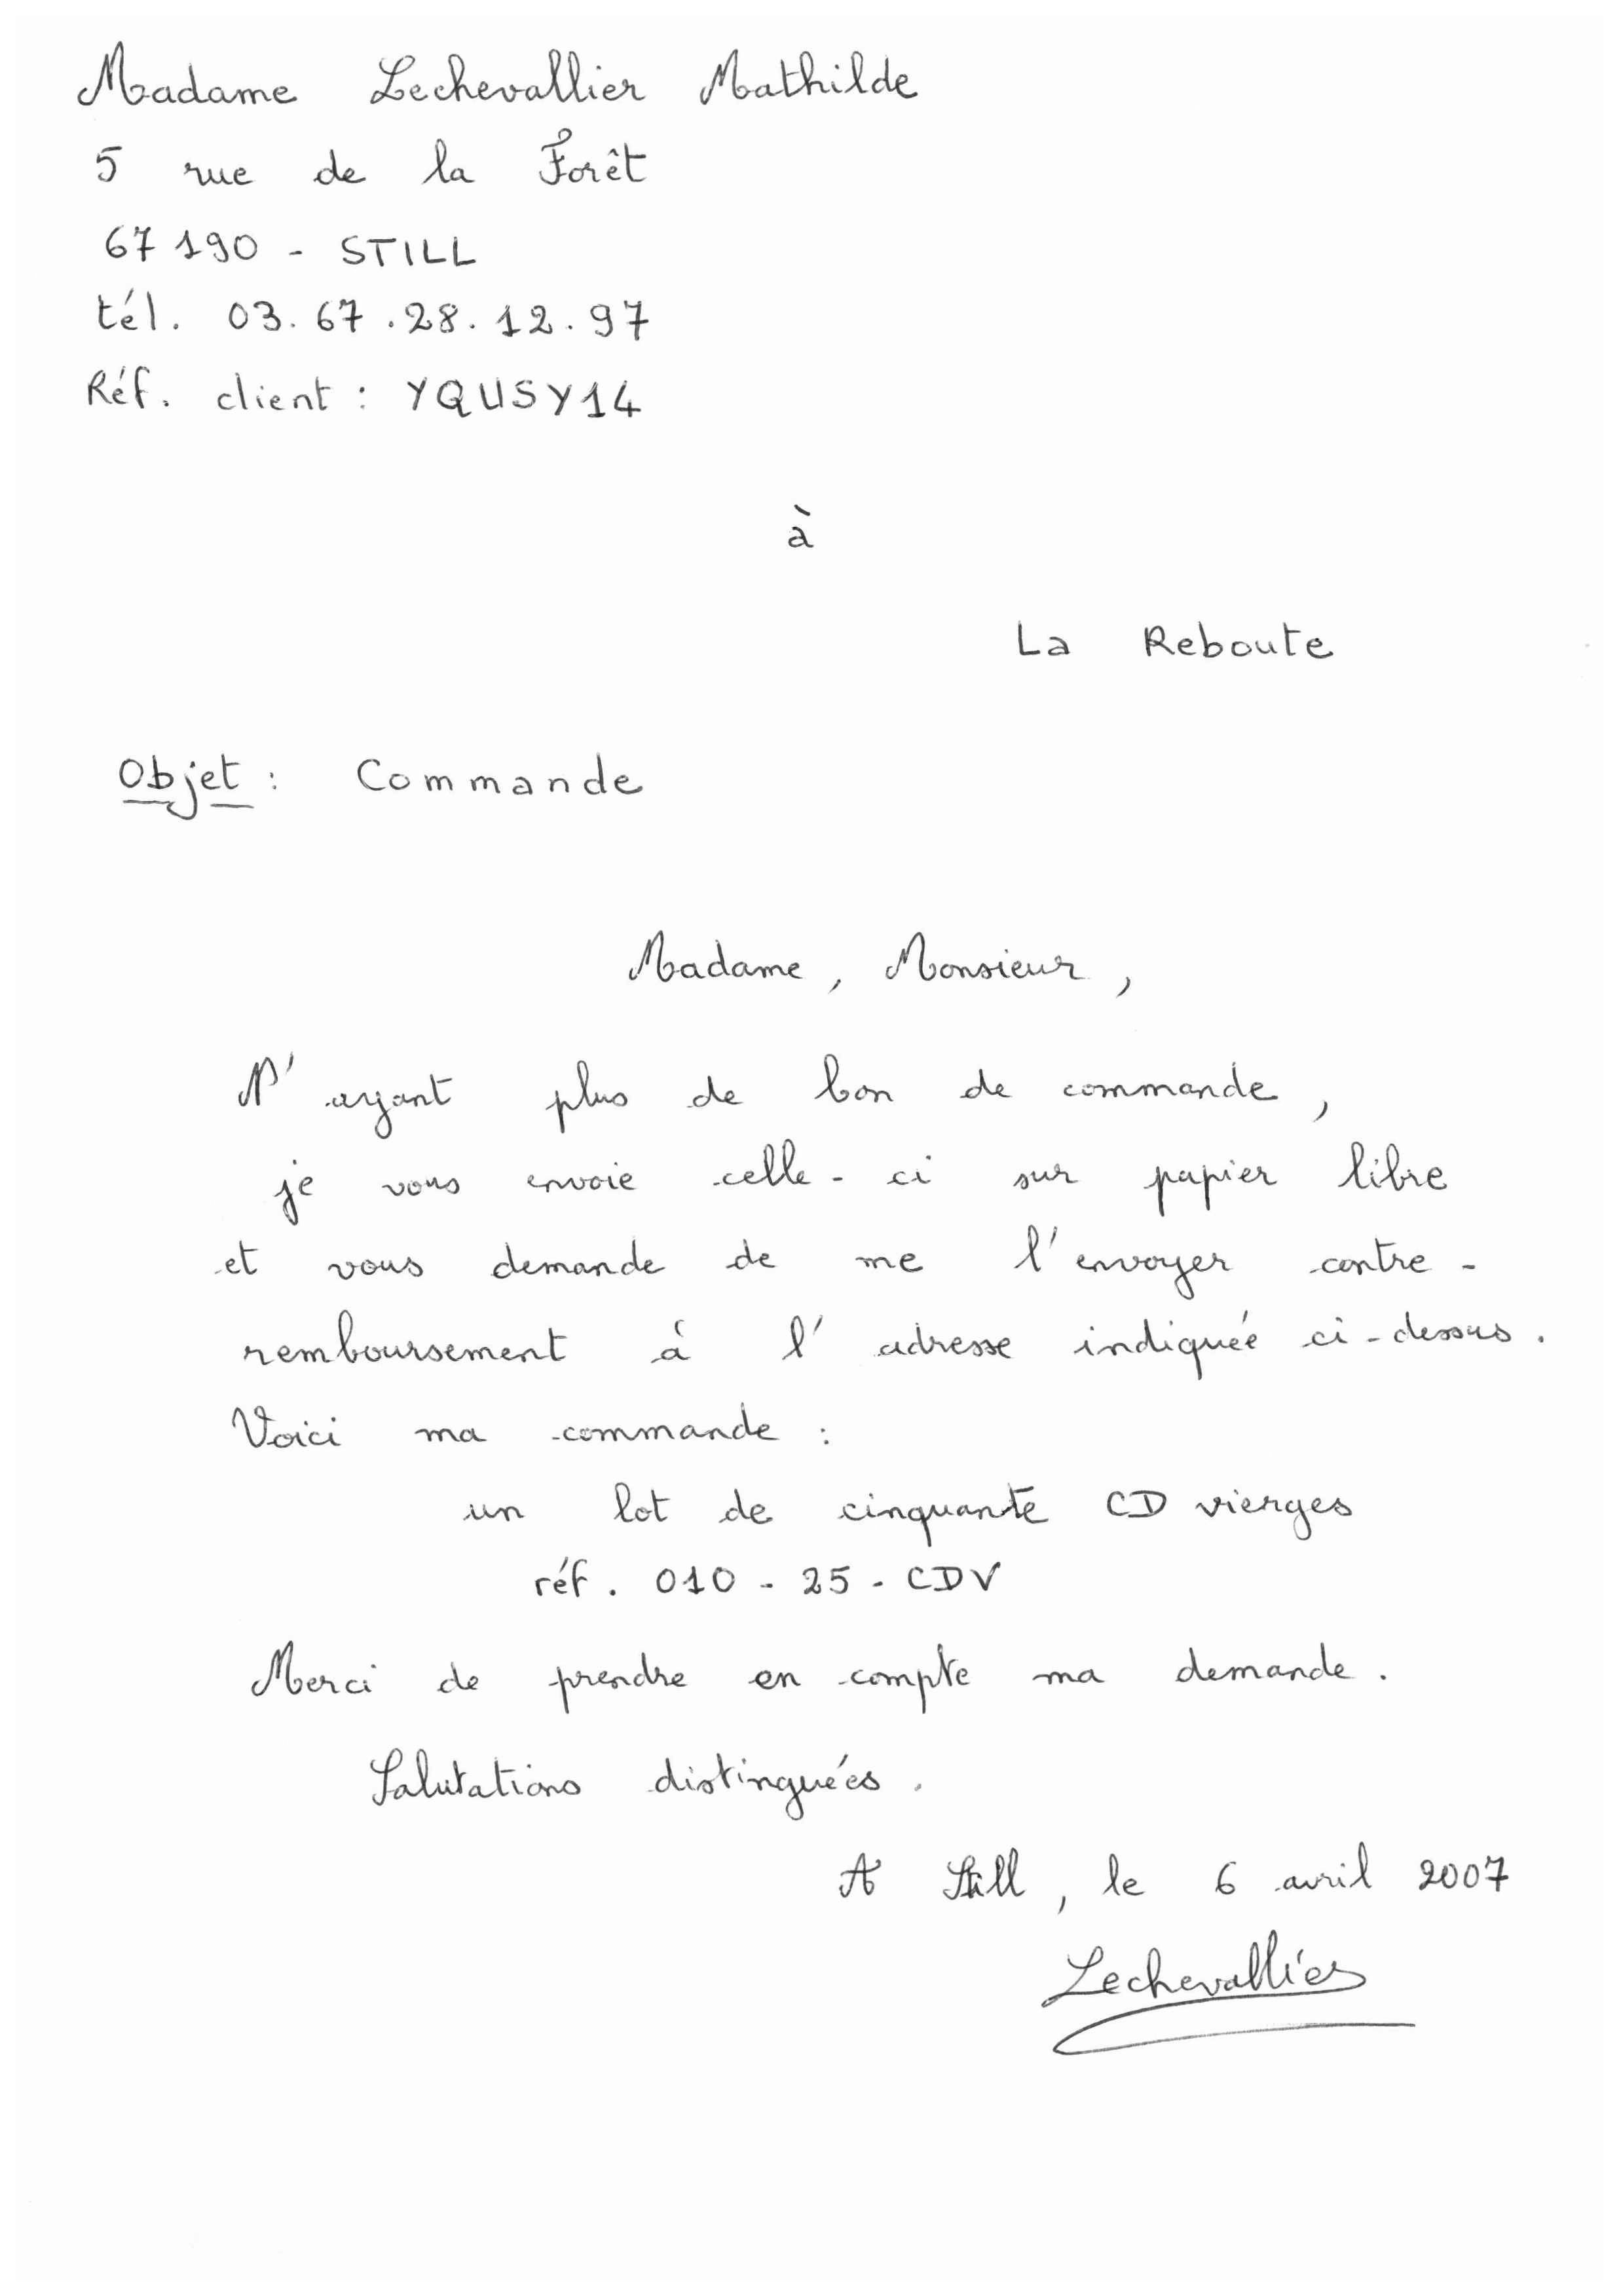 Madame Lechevallier Mathilde
5 rue de la Forêt
67190 - STILL
tél. 03.67.28.12.97
Réf. client : YQUSY14
à
La Reboute
Objet : Commande
Madame, Monsieur,
N'ayant plus de bon de commande,
je vous envoie celle-ci sur papier libre
et vous demande de me l'envoyer contre-
remboursement à l'adresse indiquée ci-dessus.
Voici ma commande :
un lot de cinquante CD vierges
réf. 010-25-CDV
Merci de prendre en compte ma demande.
Salutations distinguées.
A Still, le 6 avril 2007
Lechevallier